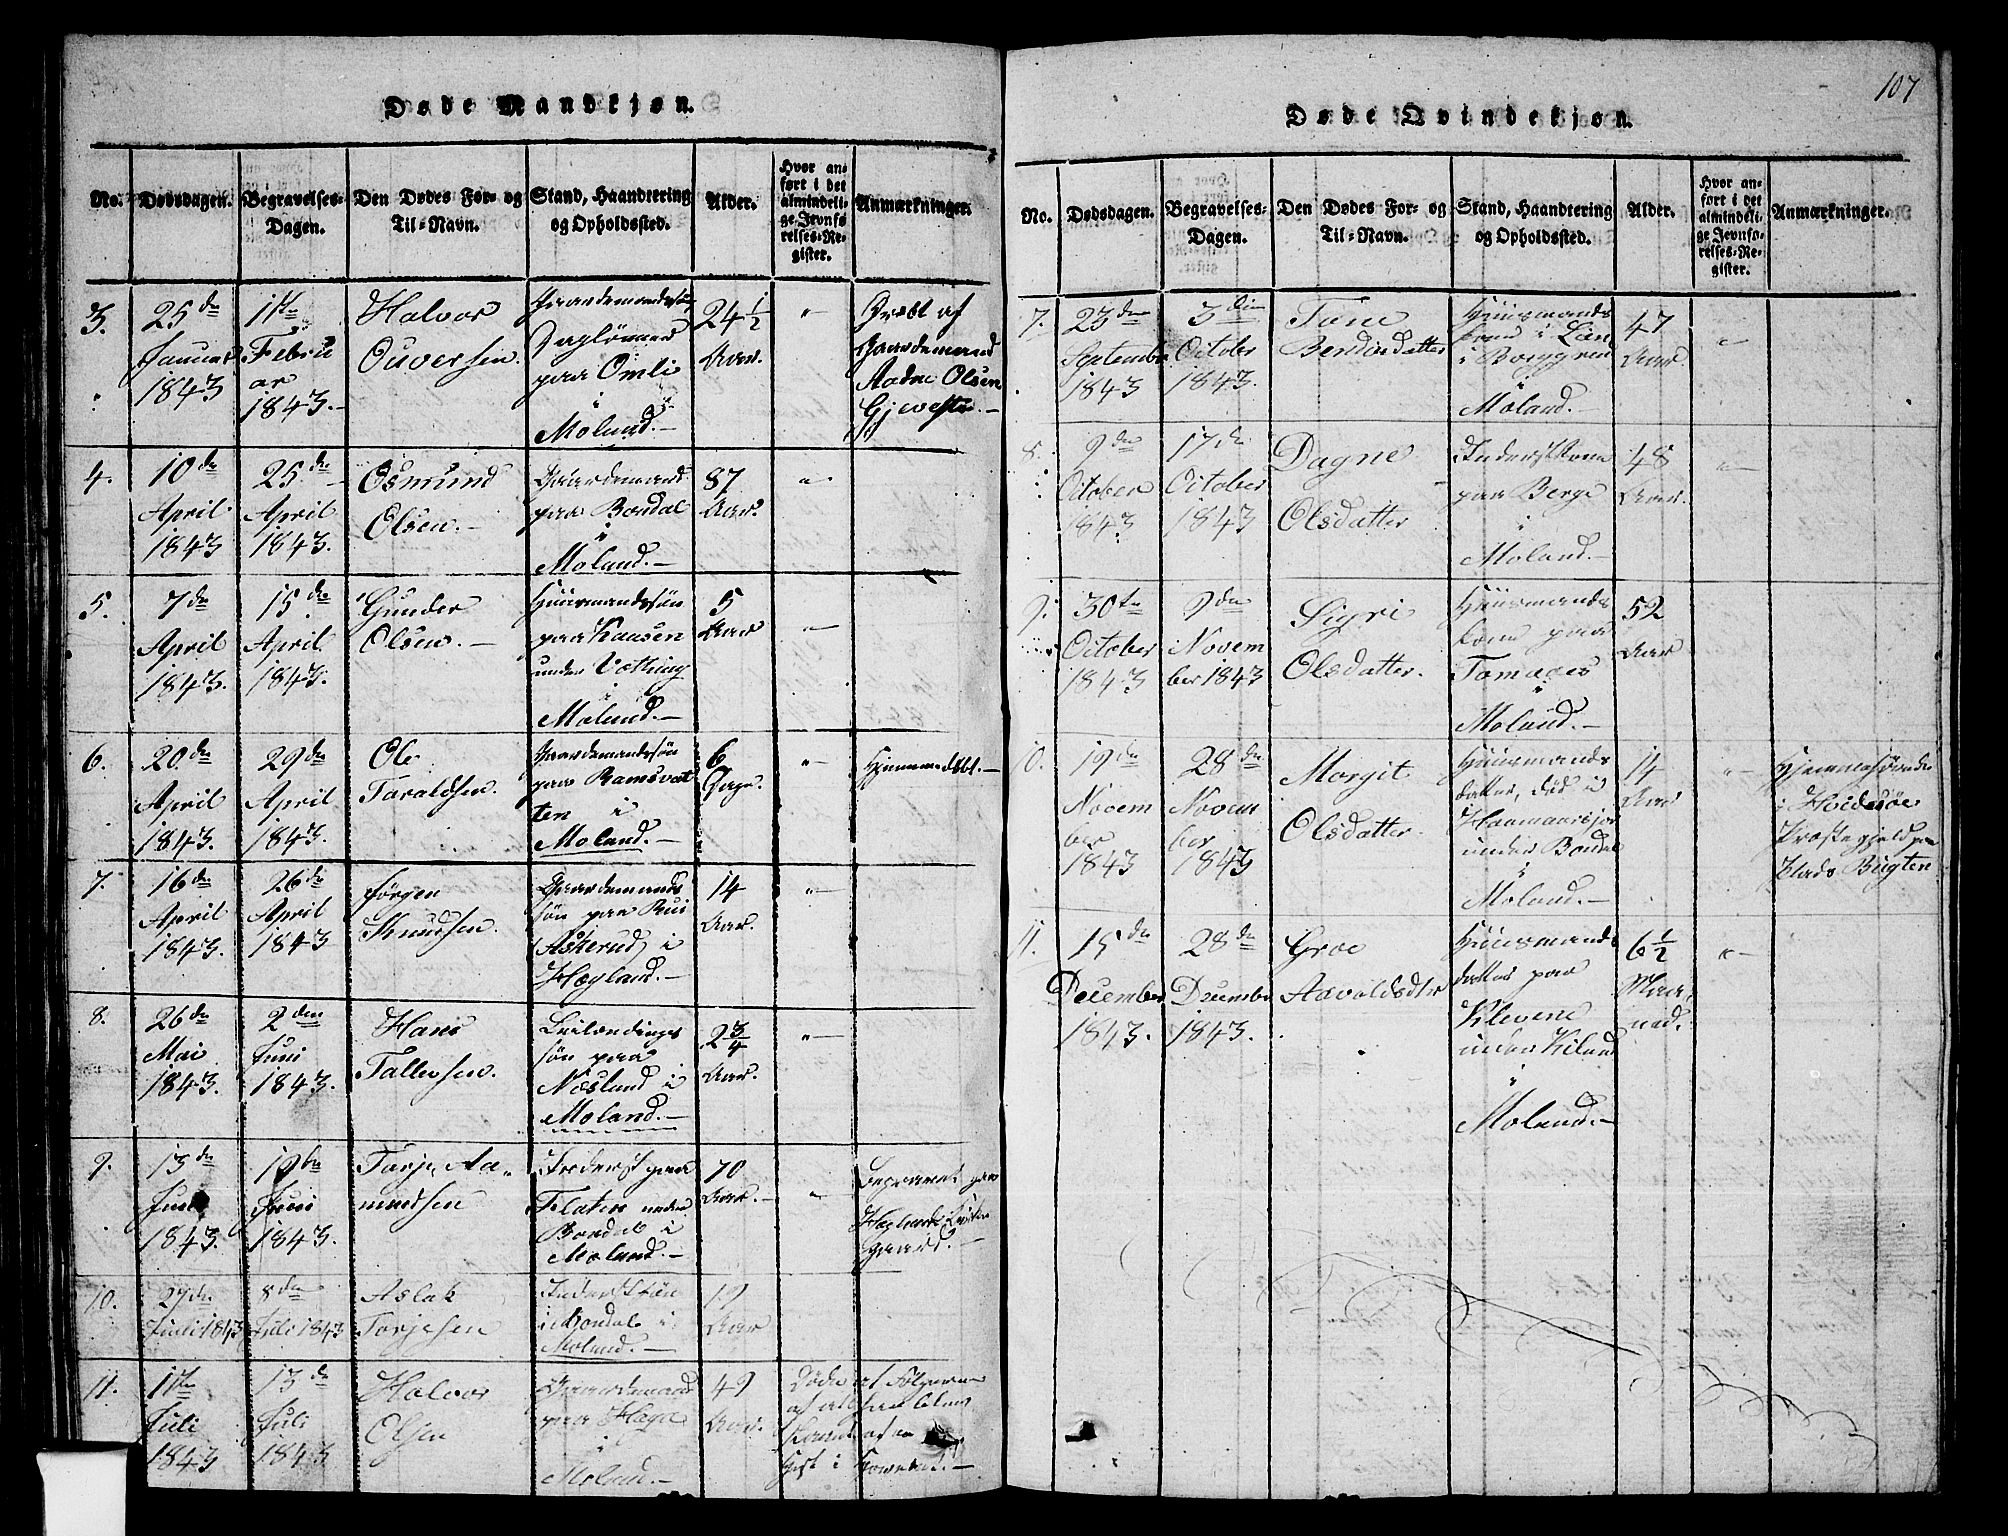 107
Døde Mandkjøn.
No.
Dødsdagen.
Begravelses-
Dagen.
Den Dødes For- og
Til-Navn.
Stand, Haandtering
og Opholdssted.
Alder.
Hvor an-
ført i det
almindeli-
ge Jevnfø-
relses-Re-
gister.
Anmærkninger.
3.
25de
Januar
1843
1ste
Febru
ar
1843.-
Halvor
Ouversen.
Gaardemandssøn
Daglønner
paa Omli
i
Moland.-
24 1/2
Aar.
"
Dræbt af
Gaardemand
Aadne Olsen
Gjevesta.-
4.
10de
April
1843
25de
April
1843.
Osmund
Olsen.-
Gaardemand
paa Bondal
i
Moland.-
87
Aar.
"
5.
7de
April
1843.
15de
April
1843.
Gunder
Olsen.-
Huusmandssøn
paa Kaasen
under
i
Moland.-
5
Aar
"
6.
20de
April
1843.
29de
April
1843.
Ole
Taraldsen.
Gaardemandssøn
paa Ramsvat
ten i
Moland.-
6
Dage.
"
Hjemmedøbt.-
7.
16de
April
1843.
26de
April
1843
Jørgen
Knudsen.
Gaardemands
søn paa Rui
(Askerud) i
Hægland.-
14
Aar.
"
8.
26de
Mai
1843.
2den
Juni
1843.
Hans
Tallevsen.
Leilændings
søn paa
Næsland i
Moland.-
2 3/4
Aar.
"
9.
13de
Juni
1843.
19de
Juni
1843.
Torje Aa-
mundsen
Inderst paa
Flaten under
Bondal i
Moland.-
70
Aar.-
"
Begravet paa
Hæglands Kirke
gaard.-
10.
27de
Juli 1843
8de
Juli 1843
Aslak
Torjesen
Inderstsøn
i Bondal i
Moland.-
19
Aar
11.
1ste
Juli
1843
13de
Juli
1843
Halvor
Olsen
Gaardemand
paa Haga
i
Moland.-
49
Aar.
Døde af Følgerne
af at
af en
Gift i Hovedet.-
Døde Qvindekjøn.
No.
Dødsdagen.
Begravelses-
Dagen.
Den Dødes For- og
Til-Navn.
Stand, Haandtering
og Opholdssted.
Alder.
Hvor an-
ført i det
almindeli-
ge Jevnfø-
relses-Re-
gister.
Anmærkninger.
7.
23de
September
1843
3die
October
1843.
Tone
Berdinsdatter
Huusmands
kone i Lien
i Borggren
i
Moland.-
47
Aar.
"
8.
9de
October
1843
17de
October
1843
Dagne
Olsdatter
Inderstkone
paa Berge
i
Moland.-
48
Aar.
"
9.
30te
October
1843
9de
Novem
ber 1843
Sigri
Olsdatter.
Huusmands
kone paa
i
Moland.-
52
Aar
10.
19de
Novem
ber
1843
28de
Novem
ber
1843
Margit
Olsdatter.
Huusmands
datter, død i
under Bondal
i
Moland.-
14
Aar
"
Hjemmehørende
i Hvidesøe
Præstegjeld paa
Plads Bugten
11.
15de
December
1843.
28de
December
1843.
Groe
Asvoldsdtr
Huusmands
datter paa
Klevene
under Kiland
i
Moland.-
6 1/2
Maa-
ned.
"